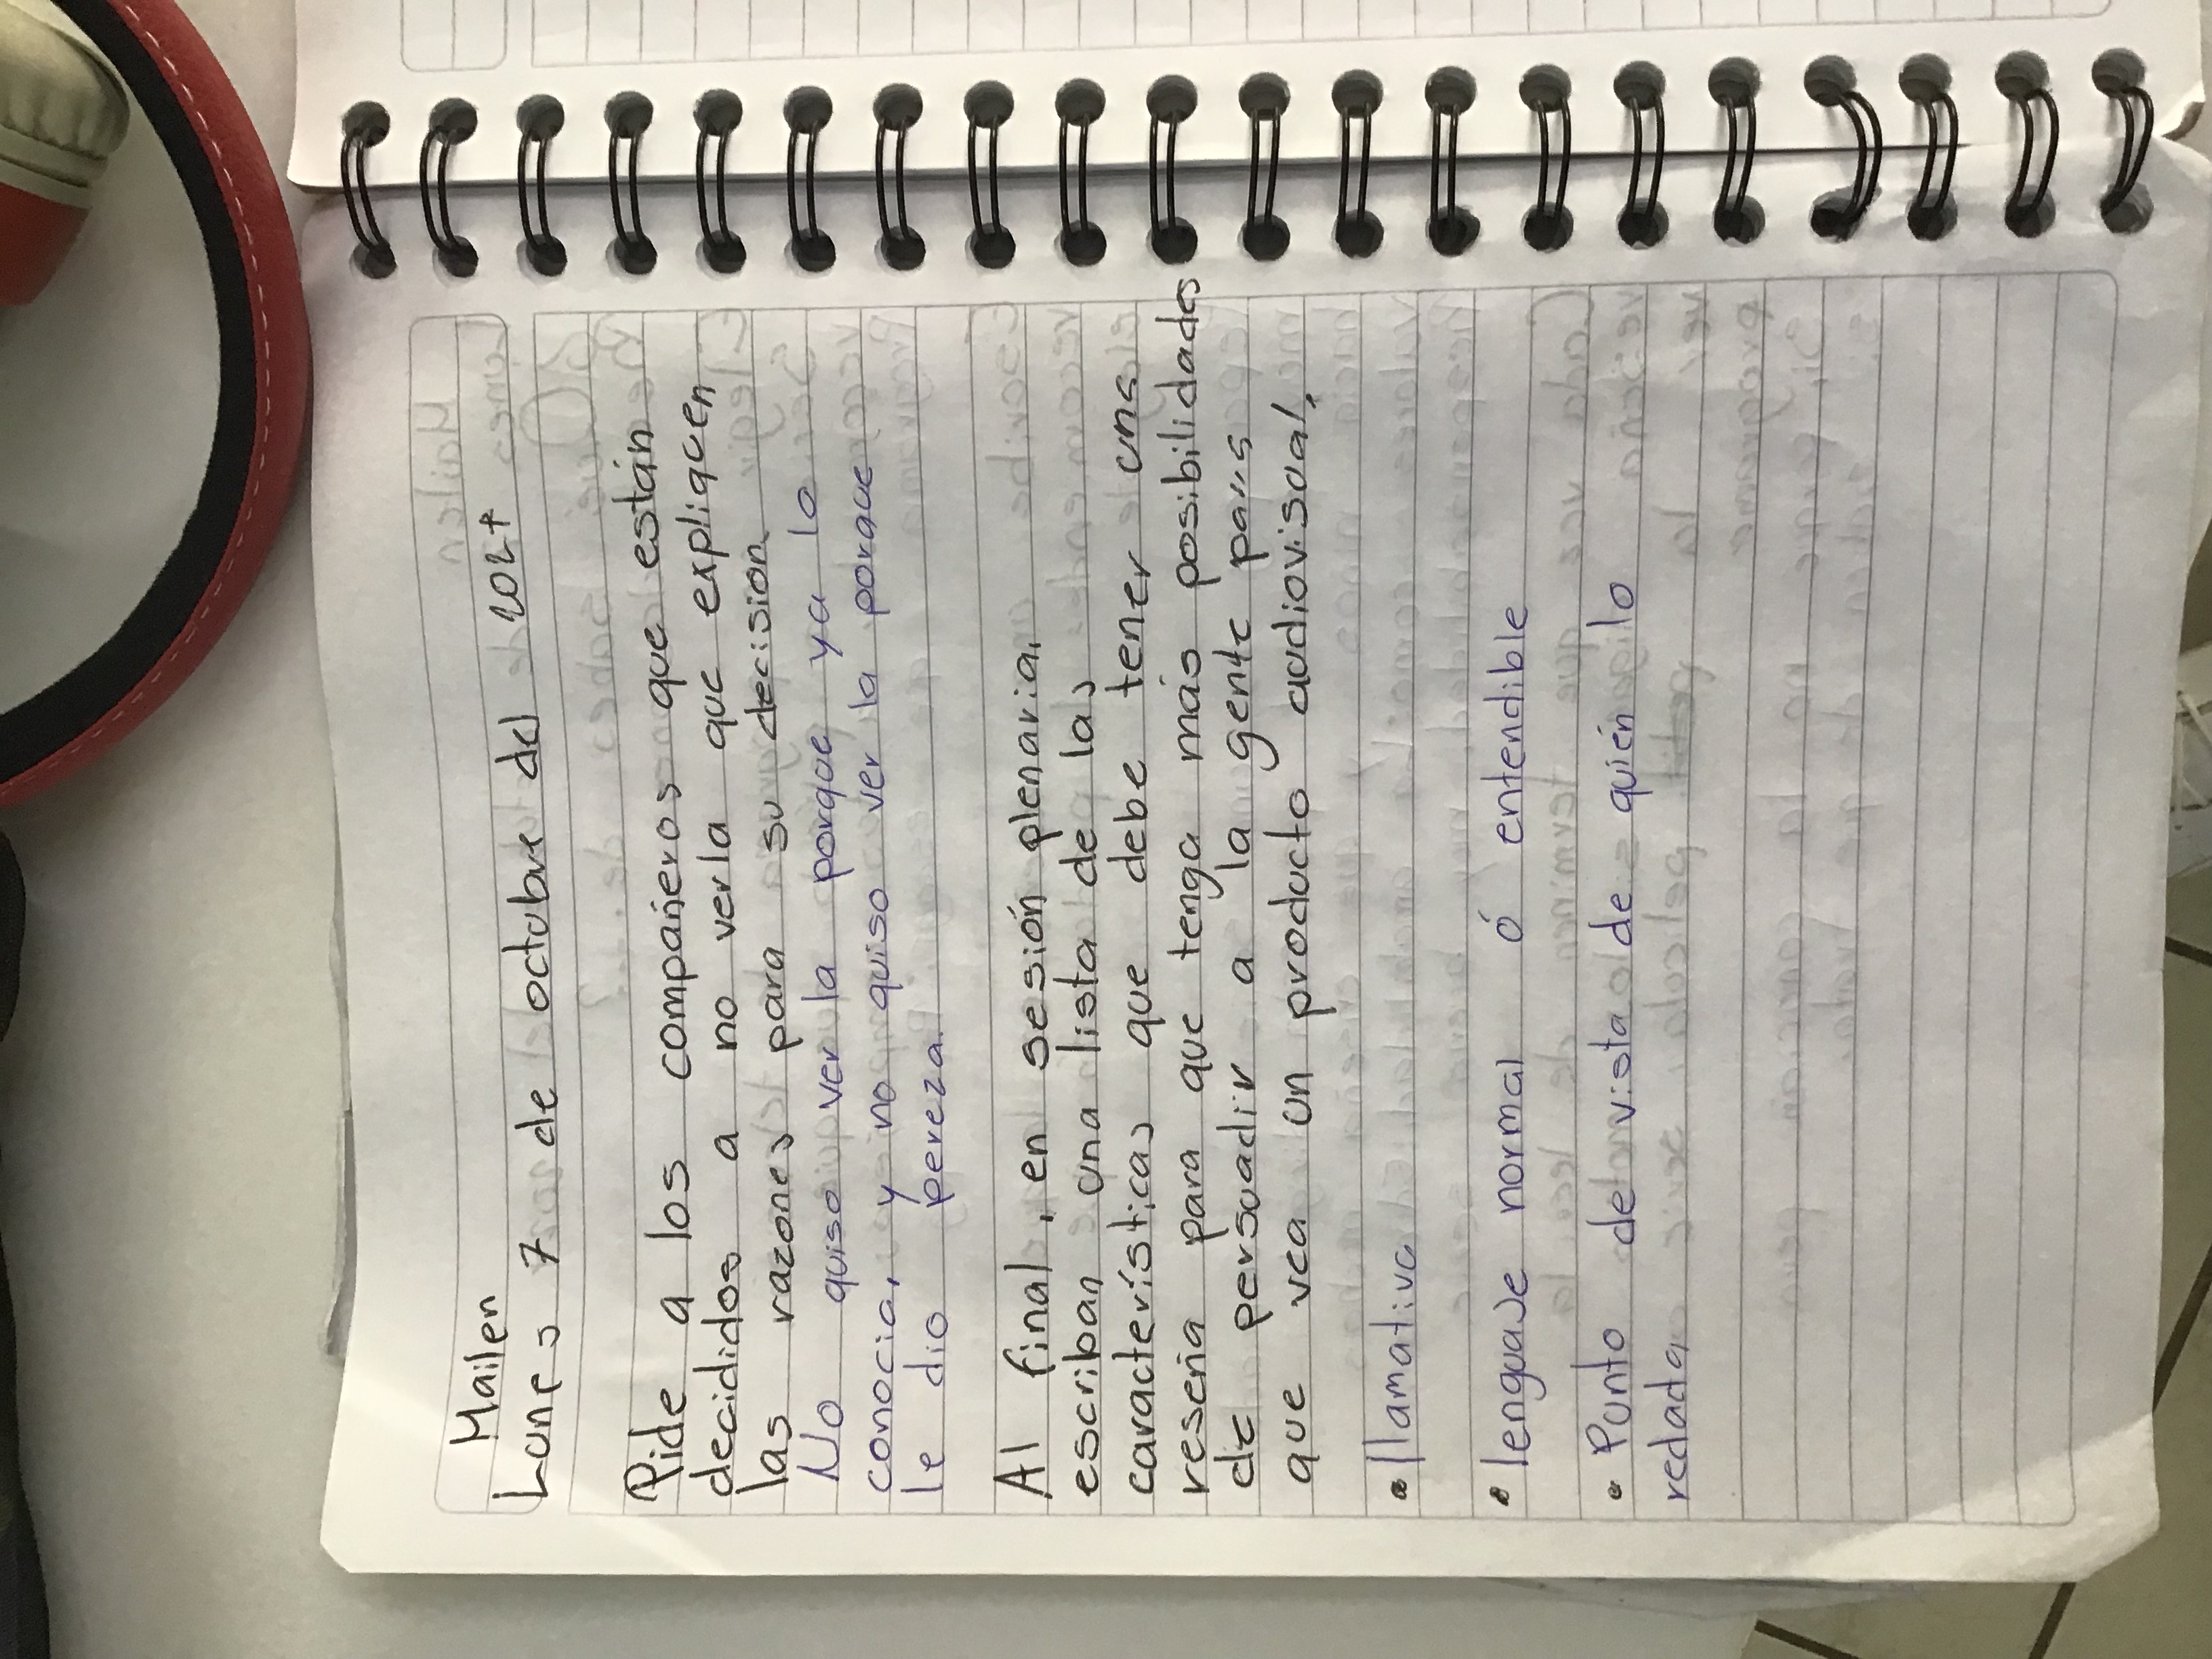 Mailen
Lunes 7 de octubre del 2024
Pide a los compañeros que están
decididos a no verla que expliquen
las razones para su decision
No quiso ver la porque ya lo
conocia, y no quiso ver la porque
le dio pereza.
Al final, en sesión plenaria,
escriban una lista de las
características que debe tener una
reseña para que tenga más posibilidades
de persuadir a la gente para
que vea un producto audiovisual.
• llamativa
• lenguaje normal ó entendible
• Punto de vista de quién lo
redada